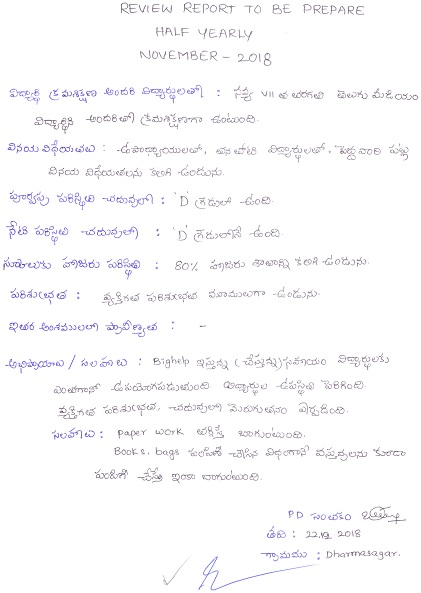 REVIEW REPORT TO BE PREPARE
HALF YEARLY
NOVEMBER - 2018
విద్యార్థి క్రమశిక్షణ అందరి విద్యార్థులతో : సత్య VII వ తరగతి తెలుగు మీడియం
విద్యార్థిని అందరితో క్రమశిక్షణగా ఉంటుంది.
వినయ విధేయతలు : ఉపాధ్యాయులతో, తన తోటి విద్యార్థులతో, పెద్దవారి పట్ల
వినయ విధేయతలను కలిగి ఉండును.
పూర్వపు పరిస్థితి చదువులో : 'D' గ్రేడులో ఉంది.
నేటి పరిస్థితి చదువులో : 'D' గ్రేడులోనే ఉంది.
స్కూలుకు హాజరు పరిస్థితి : 80% హాజరు శాతాన్ని కలిగి ఉండును.
పరిశుభ్రత : వ్యక్తిగత పరిశుభ్రత మామూలుగా ఉండును.
ఇతర అంశములలో ప్రావీణ్యత : -
అభిప్రాయాలు / సలహాలు : Bighelp ఇస్తున్న (చేస్తున్న) సహాయం విద్యార్థులకు
ఎంతగానో ఉపయోగపడుతుంది. విద్యార్థుల ఉపస్థితి పెరిగింది.
వ్యక్తిగత పరిశుభ్రత, చదువులో మెరుగుతనం ఏర్పడింది.
సలహాలు : paper work తగ్గిస్తే బాగుంటుంది.
Books, bags పంపిణీ చేసిన విధంగానే వస్తువులను కూడా
పంపిణీ చేస్తే ఇంకా బాగుంటుంది.
PD సంతకం
తేది : 22.10 2018
గ్రామము : Dharmasagar.